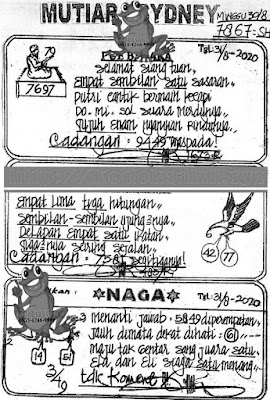 MUTIARA SYDNEY
MINGGU 30/8
7867
79
7697
Tgl: 31/8-2020
Selamat siang tuan,
empat sembilan satu sasaran
putri cantik bermain kecapi
Do. mi. sol suara merdunya,
tujuh enam nyanyian rindunya,
Cadangan: 9449 waspada!
empat lima tiga hitungan,
Sembilan-sembilan
Delapan empat satu ikatan
sering sejalan,
Cadangan: 7581
42
77
NAGA
Tgl: 31/8-2020
3 menanti jawab: 5849 diperempatan,
jauh dimata dekat dihati: 61
maju tak gentar sang juara satu,
Eta dan Eli siaga satu menang,
tdk Koment
2
14
51
3/9